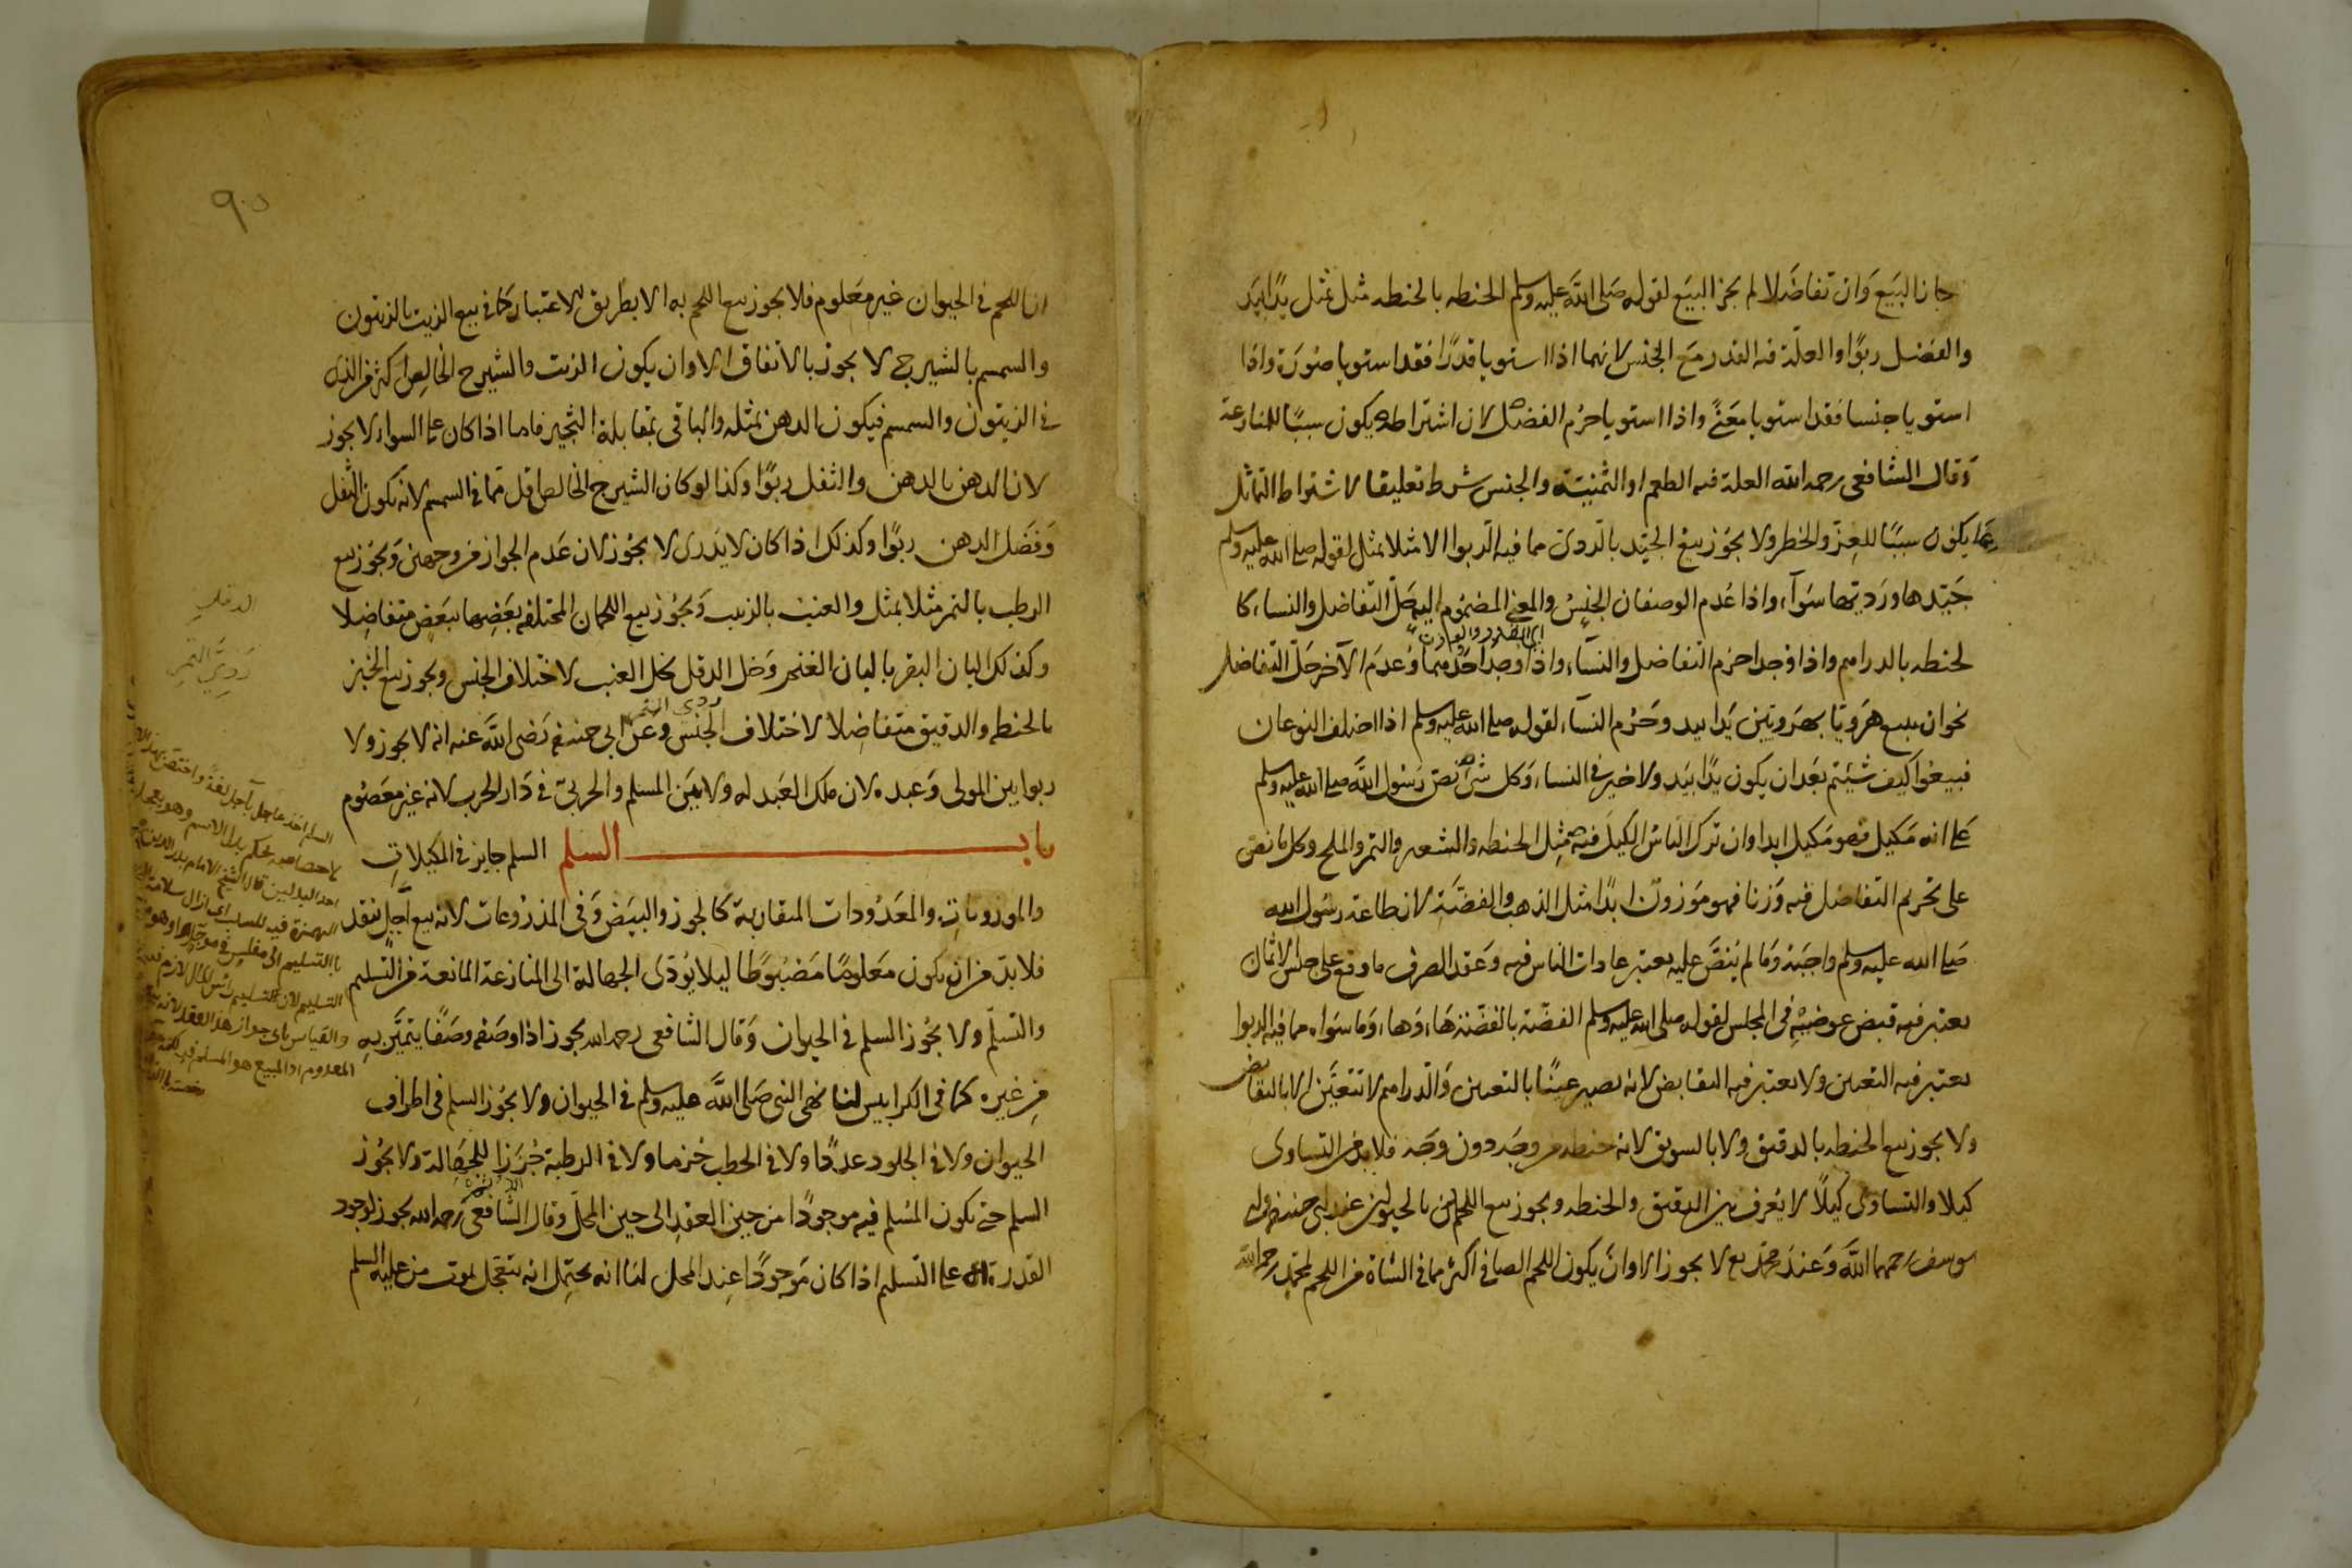 جاز البيع وان تفاضلا لم يجز البيع لقوله صلى الله عليه وسلم الحنطه بالحنطه مثل بمثل يدا بيد
والفضل ربوا والعلة فيه القدر مع الجنس لانهما اذا استويا قدرا فقد استويا صورة واذا
استويا جنسا فقد استويا معنى واذا استويا حرم الفضل لان اشتراطه يكون سببا للمنازعة
وقال الشافعى رحمه الله العلة فيه الطعم او الثمنية والجنس شرط تعليقا لاشتراط التماثل
بما يكون سببا للعز والخطر ولا يجوز بيع الجيد بالردى مما فيه الربوا الا مثلا بمثل لقوله صلى الله عليه وسلم
جيدها ورديها سواء واذا عدم الوصفان الجنس والمعنى المضموم اليه حل التفاضل والنساء كا
اى القدر والوزن
لحنطه بالدراهم واذا وجدا حرم التفاضل والنساء واذا وجد احدهما وعدم الآخر حل التفاضل
نحو ان يبيع هرويا بهرويين يدا بيد وحرم النساء لقوله صلى الله عليه وسلم اذا اختلف النوعان
فبيعوا كيف شيئتم بعد ان يكون يدا بيد ولا خير فى النساء وكل شئ نص رسول الله صلى الله عليه وسلم
على انه مكيل فهو مكيل ابدا وان ترك الناس الكيل فيه مثل الحنطه والشعير والتمر والملح وكل ما نص
على تحريم التفاضل فيه وزنا فهو موزون ابدا مثل الذهب والفضة لان طاعة رسول الله
صلى الله عليه وسلم واجبة وما لم ينص عليه يعتبر عادات الناس فيه وعقد الصرف ما وقع على جنس الاثمان
يعتبر فيه قبض عوضيه فى المجلس لقوله صلى الله عليه وسلم الفضة بالفضة هاء وهاء وما سواه مما فيه الربوا
يعتبر فيه التعيين ولا يعتبر فيه التقابض لانه يصير عينا بالتعيين والدراهم لا تتعين الا بالتقابض
ولا يجوز بيع الحنطه بالدقيق ولا بالسويق لانه حنطه من وجه دون وجه فلا بد من التساوى
كيلا والتساوى كيلا لا يعرف بين الدقيق والحنطه ويجوز بيع اللحم بالحيوان عند ابى حنيفه وابى
يوسف رحمهما الله وعند محمد رح لا يجوز الا وان يكون اللحم الصافى اكثر مما فى الشاة من اللحم لمحمد رحمه الله
٩٠
ان اللحم فى الحيوان غير معلوم فلا يجوز بيع اللحم به الا بطريق الاعتبار كما فى بيع الزيت بالزيتون
والسمسم بالشيرج لا يجوز بالاتفاق الا وان يكون الزيت والشيرج الخالص اكثر من الذى
فى الزيتون والسمسم فيكون الدهن بمثله والباقى بمقابلة الثجير فاما اذا كان على السواء لا يجوز
لان الدهن بالدهن والثفل ربوا وكذا لو كان الشيرج الخالص اقل مما فى السمسم لانه يكون الثفل
وفضل الدهن ربوا وكذلك اذا كان لا يدرى لا يجوز لان عدم الجواز من وجهين ويجوز بيع
الرطب بالتمر مثلا بمثل والعنب بالزبيب ويجوز بيع اللحمان المختلفه بعضها ببعض متفاضلا
وكذلك البان البقر بالبان الغنم وخل الدقل بخل العنب لاختلاف الجنس ويجوز بيع الخبز
ردى التمر
بالحنطه والدقيق متفاضلا لاختلاف الجنس وعن ابى حنيفه رضى الله عنه انه لا يجوز ولا
ربوا بين المولى وعبده لان ملك العبد له ولا بين المسلم والحربى فى دار الحرب لانه غير معصوم
باب السلم السلم جايز فى المكيلات
والموزونات والمعدودات المتقاربة كالجوز والبيض وفى المذروعات لانه بيع آجل بنقد
فلا بد من ان يكون معلوما مضبوطا ليلا يؤدى الجهالة الى المنازعة المانعة من التسليم
والتسلم ولا يجوز السلم فى الحيوان وقال الشافعى رحمه الله يجوز اذا وصفه وصفا يتميز به
من غيره كما فى الكرابيس لنا نهى النبى صلى الله عليه وسلم فى الحيوان ولا يجوز السلم فى اطراف
الحيوان ولا فى الجلود عددا ولا فى الحطب حزما ولا فى الرطبة جرزا للجهالة ولا يجوز
السلم حتى يكون المسلم فيه موجودا من حين العقد الى حين المحل وقال الشافعى رحمه الله يجوز لوجود
القدرة على التسليم اذا كان موجودا عند المحل لنا انه يحتمل انه يتعجل بموت من عليه السلم
الدقل
ردى التمر
السلم اخذ عاجل بآجل لغة واختص بهذا
لاختصاصه بحكم يدل الاسم وهو تعجيل
احد البدلين قال الشيخ الامام بدر الدين
الهمزة فيه للسلب اى ازال سلامة
بالتسليم الى مفلس
التسليم لان التسليم راس المال لازم
والقياس يابى جواز هذا العقد لانه بيع
المعدوم اذ المبيع هو المسلم فيه